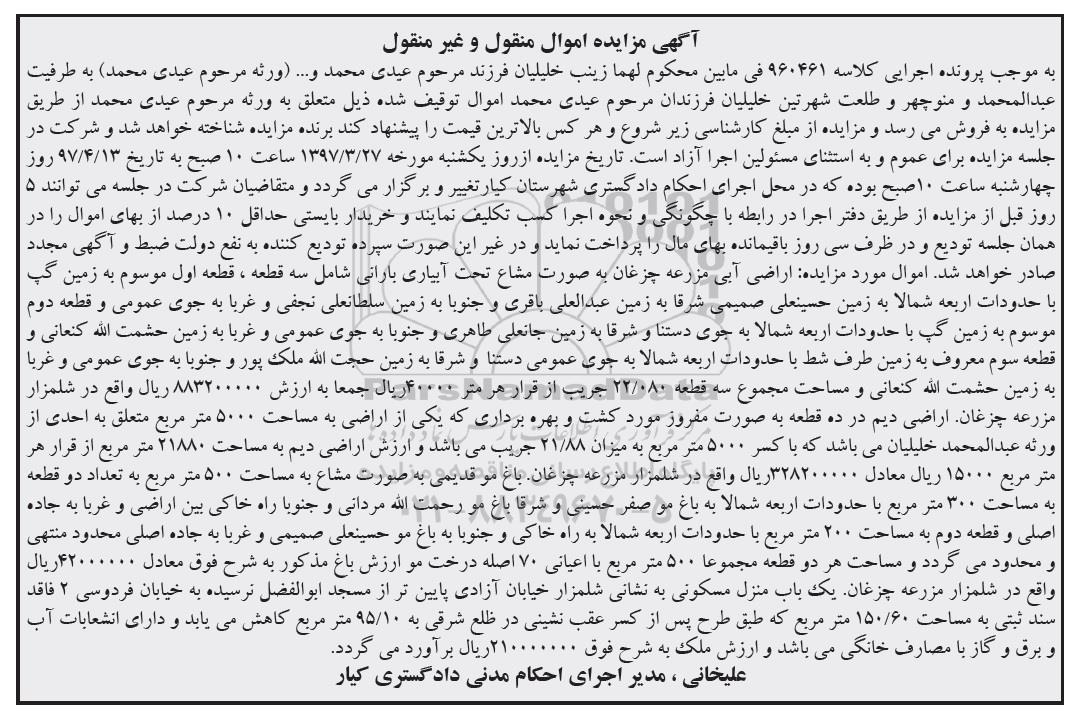 آگهی مزایده اموال منقول و غیر منقول
به موجب پرونده اجرایی کلاسه ۹۶۰۴۶۱ فی مابین محکوم لهما زینب خلیلیان فرزند مرحوم عیدی محمد و... (ورثه مرحوم عیدی محمد) به طرفیت
عبدالمحمد و منوچهر و طلعت شهرتین خلیلیان فرزندان مرحوم عیدی محمد اموال توقیف شده ذیل متعلق به ورثه مرحوم عیدی محمد از طریق
مزایده به فروش می رسد و مزایده از مبلغ کارشناسی زیر شروع و هر کس بالاترین قیمت را پیشنهاد کند برنده مزایده شناخته خواهد شد و شرکت در
جلسه مزایده برای عموم و به استثنای مسئولین اجرا آزاد است. تاریخ مزایده ازروز یکشنبه مورخه ۱۳۹۷/۳/۲۷ ساعت ۱۰ صبح به تاریخ ۹۷/۴/۱۳ روز
چهارشنبه ساعت ۱۰صبح بوده که در محل اجرای احکام دادگستری شهرستان کیارتغییر و برگزار می گردد و متقاضیان شرکت در جلسه می توانند ۵
روز قبل از مزایده از طریق دفتر اجرا در رابطه با چگونگی و نحوه اجرا کسب تکلیف نمایند و خریدار بایستی حداقل ۱۰ درصد از بهای اموال را در
همان جلسه تودیع و در ظرف سی روز باقیمانده بهای مال را پرداخت نماید و در غیر این صورت سپرده تودیع کننده به نفع دولت ضبط و آگهی مجدد
صادر خواهد شد. اموال مورد مزایده: اراضی آبی مزرعه چزغان به صورت مشاع تحت آبیاری بارانی شامل سه قطعه ، قطعه اول موسوم به زمین گپ
با حدودات اربعه شمالا به زمین حسینعلی صمیمی شرقا به زمین عبدالعلی باقری و جنوبا به زمین سلطانعلی نجفی و غربا به جوی عمومی و قطعه دوم
موسوم به زمین گپ با حدودات اربعه شمالا به جوی دستنا و شرقا به زمین جانعلی طاهری و جنوبا به جوی عمومی و غربا به زمین حشمت الله کنعانی و
قطعه سوم معروف به زمین طرف شط با حدودات اربعه شمالا به جوی عمومی دستنا و شرقا به زمین حجت الله ملک پور و جنوبا به جوی عمومی و غربا
به زمین حشمت الله کنعانی و مساحت مجموع سه قطعه ۲۲/۰۸۰ جریب از قرار هر متر ۴۰۰۰۰ریال جمعا به ارزش ۸۸۳۲۰۰۰۰۰ ریال واقع در شلمزار
مزرعه چزغان. اراضی دیم در ده قطعه به صورت مفروز مورد کشت و بهره برداری که یکی از اراضی به مساحت ۵۰۰۰ متر مربع متعلق به احدی از
ورثه عبدالمحمد خلیلیان می باشد که با کسر ۵۰۰۰ متر مربع به میزان ۲۱/۸۸ جریب می باشد و ارزش اراضی دیم به مساحت ۲۱۸۸۰ متر مربع از قرار هر
متر مربع ۱۵۰۰۰ ریال معادل ۳۲۸۲۰۰۰۰۰ریال واقع در شلمزار مزرعه چزغان. باغ مو قدیمی به صورت مشاع به مساحت ۵۰۰ متر مربع به تعداد دو قطعه
به مساحت ۳۰۰ متر مربع با حدودات اربعه شمالا به باغ مو صفر حسینی و شرقا باغ مو رحمت الله مردانی و جنوبا راه خاکی بین اراضی و غربا به جاده
اصلی و قطعه دوم به مساحت ۲۰۰ متر مربع با حدودات اربعه شمالا به راه خاکی و جنوبا به باغ مو حسینعلی صمیمی و غربا به جاده اصلی محدود منتهی
و محدود می گردد و مساحت هر دو قطعه مجموعا ۵۰۰ متر مربع با اعیانی ۱۷۰اصله درخت مو ارزش باغ مذکور به شرح فوق معادل ۴۲۰۰۰۰۰۰ریال
واقع در شلمزار مزرعه چزغان. یک باب منزل مسکونی به نشانی شلمزار خیابان آزادی پایین تر از مسجد ابوالفضل نرسیده به خیابان فردوسی ۲ فاقد
سند ثبتی به مساحت ۱۵۰/۶۰ متر مربع که طبق طرح پس از کسر عقب نشینی در ظلع شرقی به ۹۵/۱۰ متر مربع کاهش می یابد و دارای انشعابات آب
و برق و گاز با مصارف خانگی می باشد و ارزش ملک به شرح فوق ۲۱۰۰۰۰۰۰۰ریال برآورد می گردد.
علیخانی ، مدیر اجرای احکام مدنی دادگستری کیار
ParsNamadData
۰۲۱-۸۸۳۴۹۶۷۰-۵